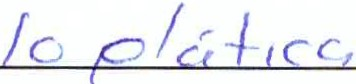 la plática